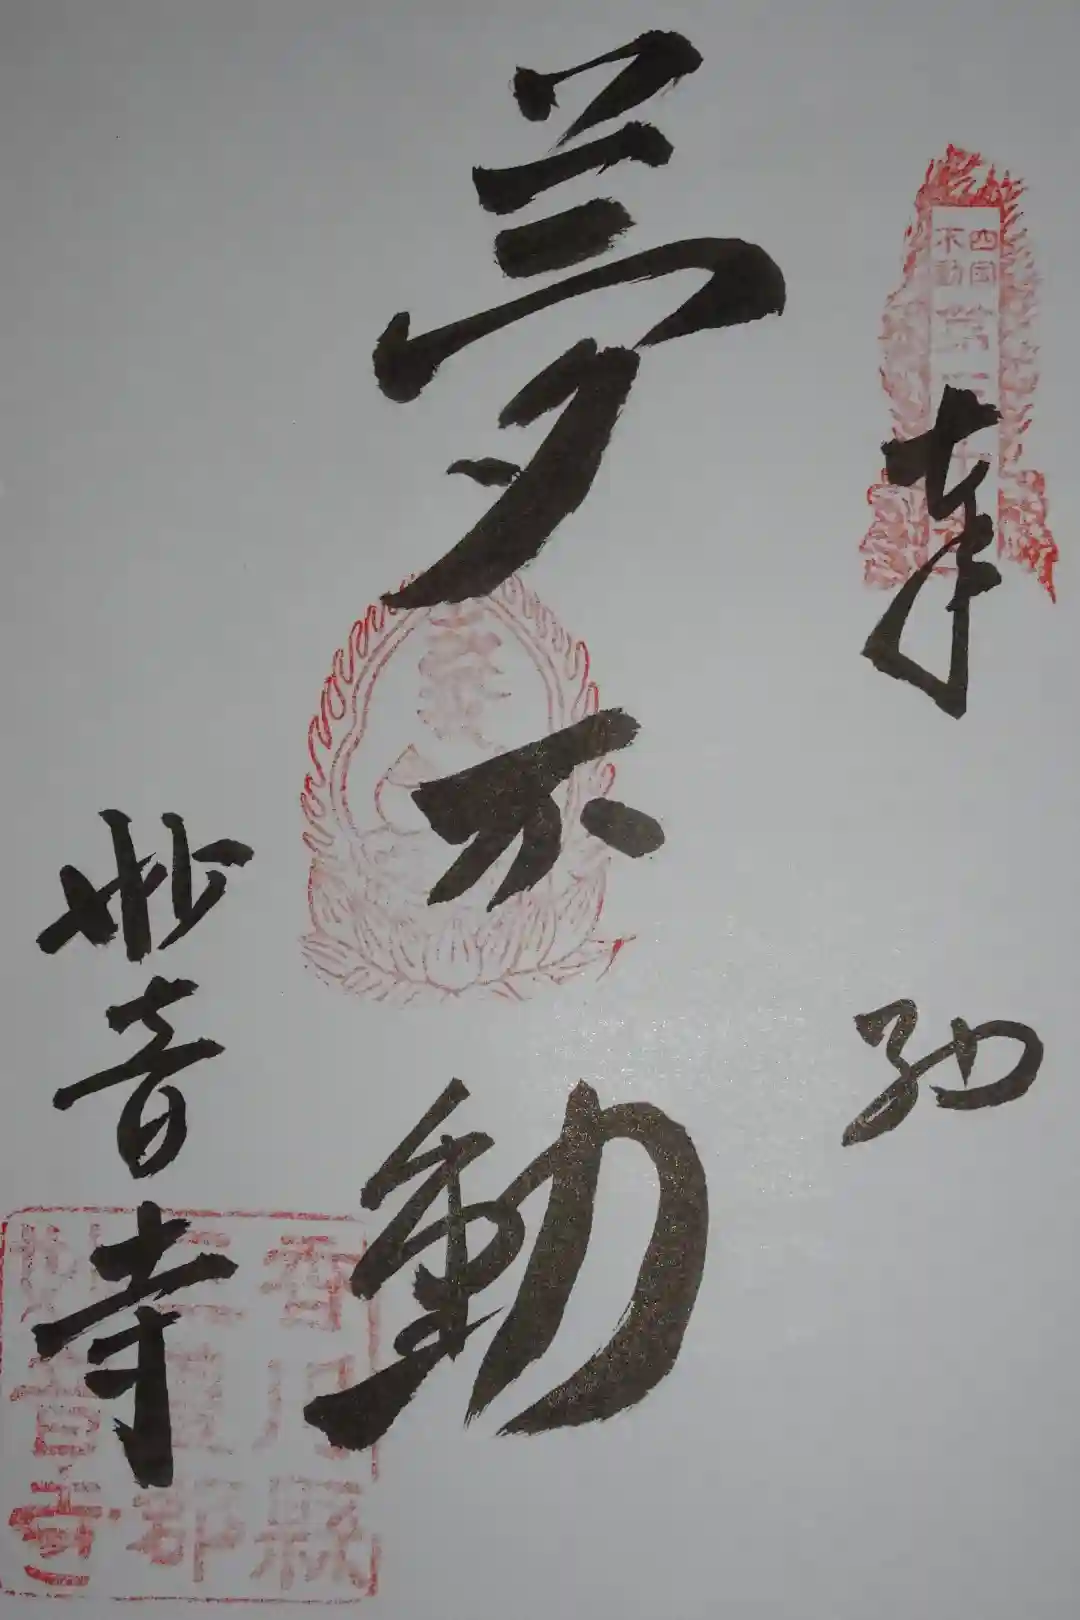 奉
納
夢不動
妙音寺
四国
不動
第二十
香川縣
三豊郡
妙音寺